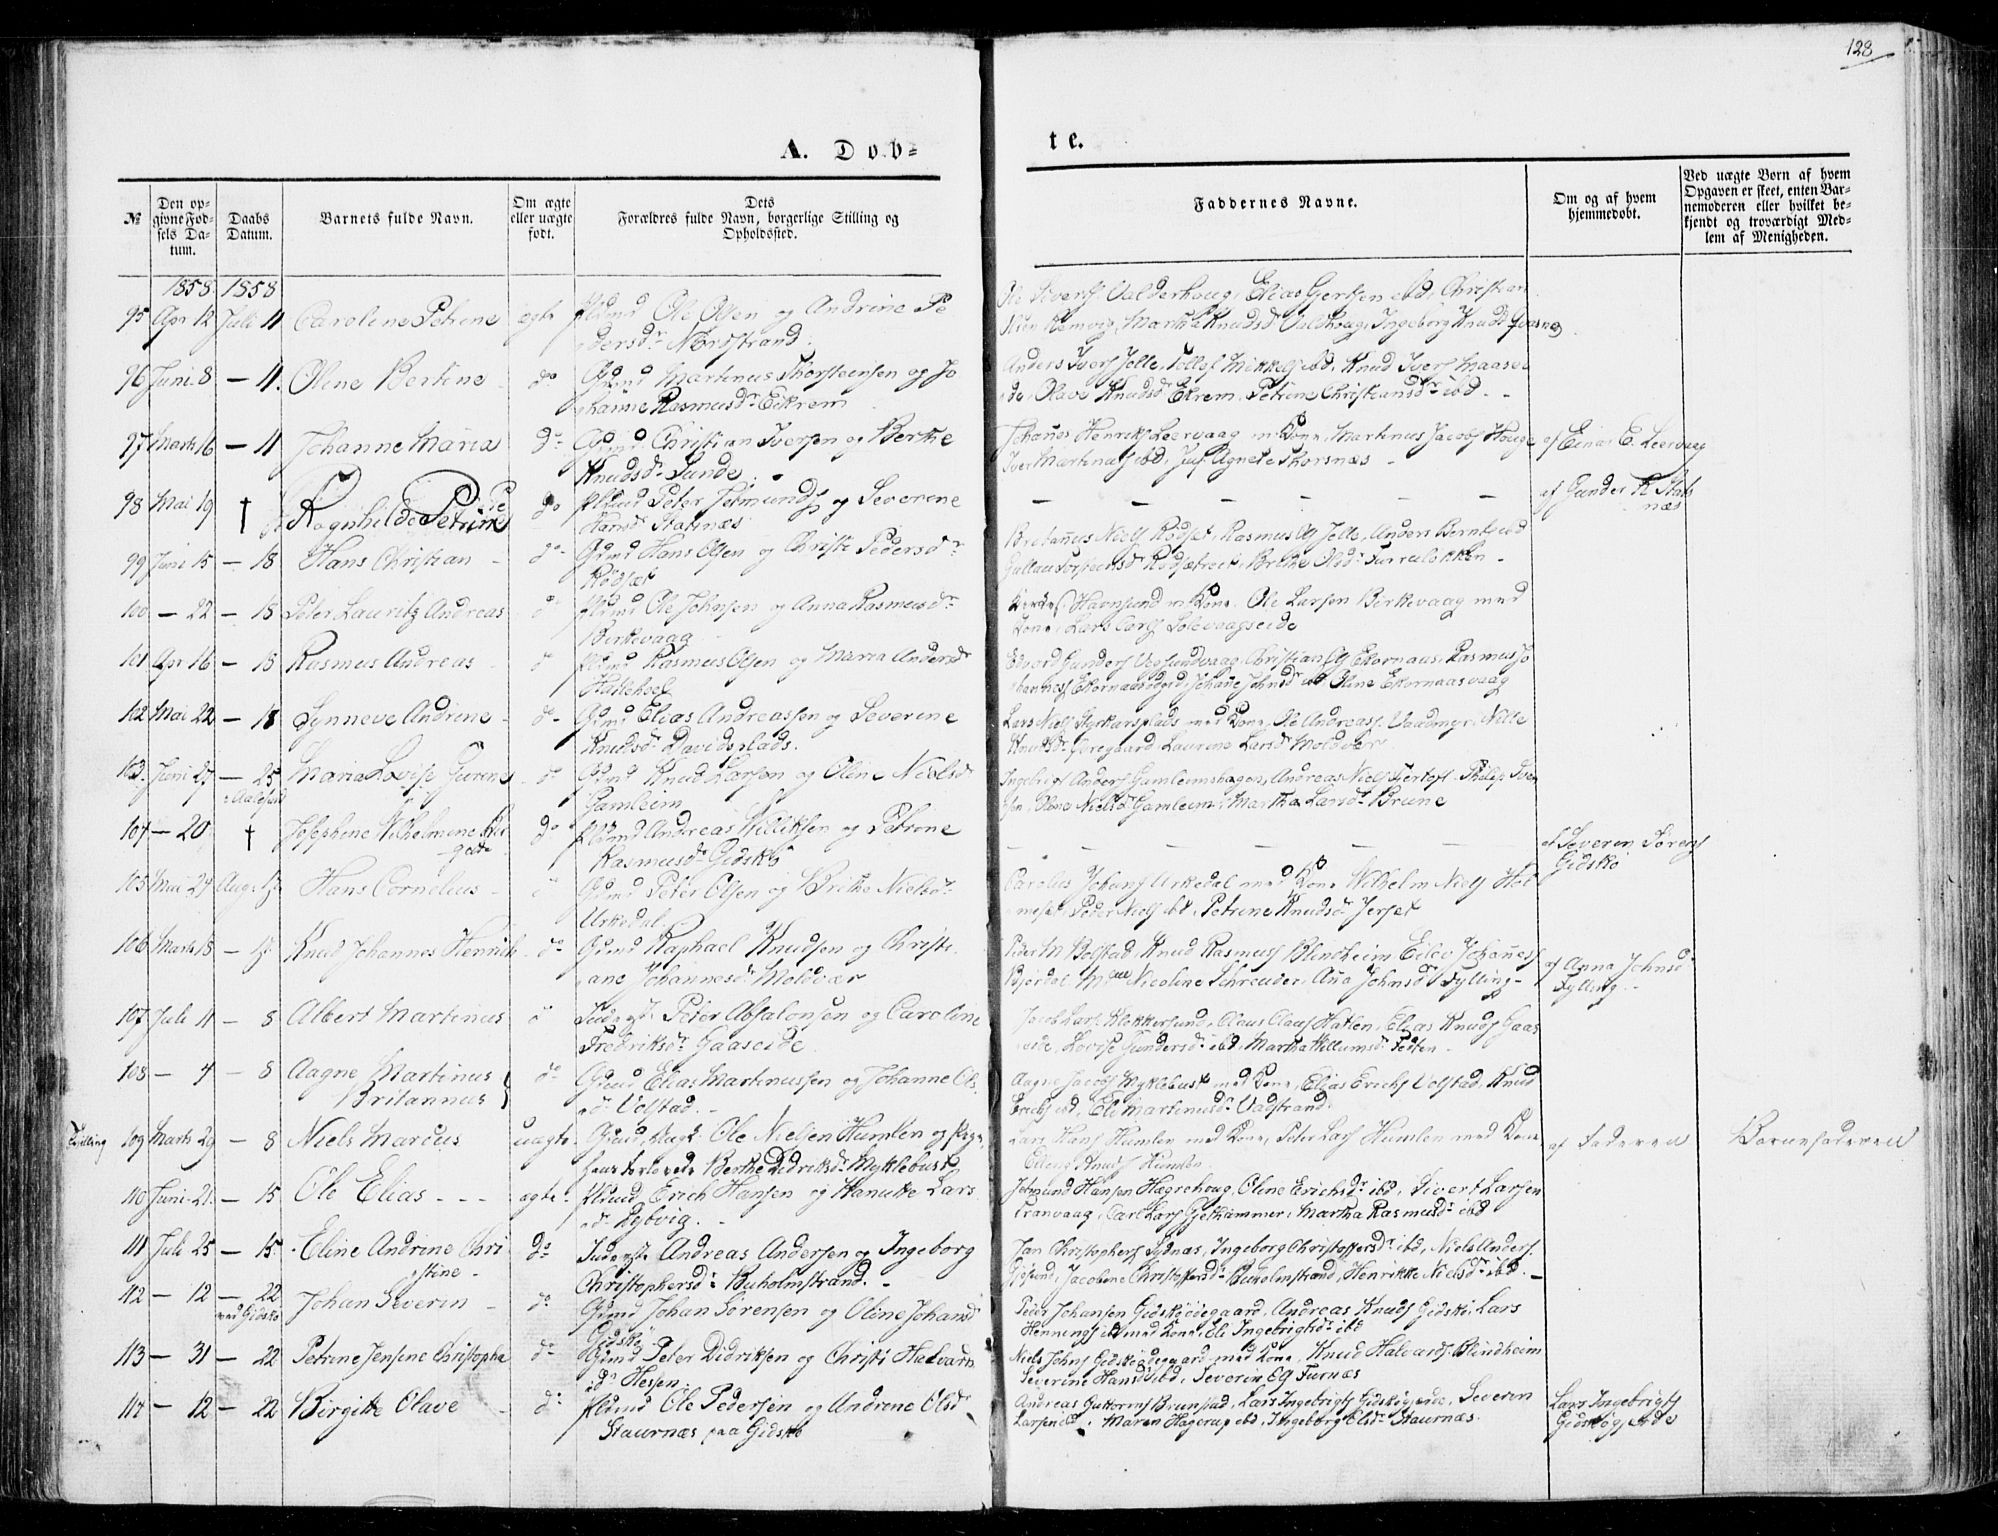 128
A. Døb=
te.
№
Den op-
givne Fød-
sels Da-
tum.
Daabs
Datum.
Barnets fulde Navn.
Om ægte
eller uægte
født.
Dets
Forældres fulde Navn, borgerlige Stilling og
Opholdssted.
Faddernes Navne.
Om og af hvem
hjemmedøbt.
Ved uægte Børn af hvem
Opgaven er skeet, enten Bar-
nemoderen eller hvilket be-
kjendt og troværdigt Med-
lem af Menigheden.
1858 1858
95 Apr 12 Juli 11 Caroline Petrine ægte Plmd Ole Olsen og Andrine Pe
dersdr Nørstrand
Ole Siverts Valderhoug, Elias Gjertsen ibd, Christian
Martha Knudsd Valdhoug, Ingeborg Knudsd
96 Juni 8 — 11. Oline Bertine do Gmd Martinus Thorsteinsen og Jo
hanne Rasmusdr Eikrem
Anders Ivers Jelle, Tollef Mikkels ibd, Knud Ivers Maase
ide, Olave Knudsd Ekrem, Petrine Christiansdr ibd
97 Marts 16 — 11 Johanne Maria do Gmd Christian Iversen og Berthe
Knudsdr Sunde
Johanes Henriks Leervaag m Kone, Martinus Jacobs Houge
Iver Martinus ibd, Agnete Thorsnæs
af Einar E. Leervaag
98 Mai 19 † Ragnhilde Petrine do Plmd Peter Jetmunds og Severine
Hansdr Statnæs
— — — — — —
af Gunder K Stat
næs
99 Juni 15 — 18 Hans Christian do Gmd Hans Olsen og Christi Pedersdr
Rødset
Britanus Niels Rødset, Rasmus Ols Jelle, Anders Bernts ibd
Rødsætreit, Brithe Olsdr Furuløkken
100 — 22 — 18 Peter Lauritz Andreas do Plmd Ole Johnsen og Anna Rasmusdr
Birkevaag
Havnsund m Kone, Ole Larsen Berkevaag med
Kone, Lars Carls Solevaagseide
101 Apr 16 — 18 Rasmus Andreas do Plmd Rasmus Olsen og Maria Andersdr
Hatlehoel
Edvard Gunders Vegsundvaag, Christian Ols Ekornaas, Rasmus Jo
hannes Ekornaasødegrd, Johane Johnsdr ibd Oline Ekornaasvaag
102 Mai 22 — 18 Synneve Andrine do Gmd Elias Andreassen og Severine
Knudsdr Davidsplads
Lars Niels Styrkarsplads med Kone, Ole Andreass Vaadmyr, Nille
Knudsdr Øregaard, Laurine Larsd Moldvær
103 Juni 27 — 25 Maria Lovise Gurine do Gmd Knud Larsen og Oline Nielsdr
i Aalesund
Gamleim
Ingebrigt Anders Gamleimshagen, Andreas Niels Fjortoft, Philip Iver
sen, Oline Nielsdr Gamleim, Martha Larsdr Brune
104 — 20 † Josephine Wilhelmine Bir do Plmd Andreas Williksen og Petrine
gitte
Rasmusdr Gidskø
— — — — — —
af Severin Sørens
Gidskø
105 Mai 24 Aug. 1 Hans Cornelius do Gmd Peter Olsen og Brithe Nielsdr
Urkedal
Carolus Johans Urkedal med Kone Wilhelm Niels Hol
meset, Peder Niels ibd, Petrine Knudsd Jerset
106 Marts 18 — 1 Knud Johannes Henrich do Gmd Raphael Knudsen og Christi
ane Johannesdr Moldvær
Peder M Bolstad, Knud Rasmuss Blindheim Eilev Johanes
Bjørdal, Mlle Nicoline Schreuder, Ana Johnsdr Fylling
af Anna Johnsd
Fylling
107 Juli 11 — 8 Albert Martinus do Inderst Peter Absalonsen og Caroline
Fredriksdr Gaaseide
Jacob Lars Klokkersund, Olaus Olaus Hatlen, Elias Knuds Gaas
eide, Lovise Gundersdr ibd, Martha Willumsdr Festen
108 — 4 — 8 Aagne Martinus do Gmd Elias Martinussen og Johanne Ols
Britannus
dr Volstad
Aagne Jacobs Myklebust med Kone, Elias Erichs Volstad, Knud
Erichs ibd, Eli Martinusdr Vadstrand
Tvilling 109 Marts 29 — 8 Niels Marcus uægte Ole Nielsen Humlen og Pige,
hans forlovede Berthe Didriksdr Myklebust
Lars Hans Humlen med Kone, Peter Lars Humlen med Kone
Knuds Humlen
af Faderen Barnefaderen
110 Juni 21 — 15 Ole Elias ægte Plmd Erich Hansen og Hanikke Lars
dr Lybvig
Jetmund Hansen Hægrehoug, Oline Erichsdr ibd, Sivert Larsen
Tranvaag, Carl Lars Gjethammer, Martha Rasmusdr ibd
111 Juli 25 — 15 Eline Andrine Chri do Inderst Andreas Andersen og Ingeborg
stine
Christophersdr Buholmstrand
Jan Christophers Sydnæs, Ingeborg Christoffersdr ibd, Niels Anders
Gjøsund, Jacobine Christoffersdr Buholmstrand, Henrikke Nielsdr ibd
112 — 12 — 22 Johan Severin do Gmd Johan Sørensen og Oline Johansd
ved Gidskø
Gidskø
Peder Johansen Gidskøødegaard, Andreas Knuds Gidskø, Lars
Hennings ibd med Kone, Eli Ingebrigtsdr ibd
113 — 31 — 22 Petrine Jensine Christopha do Gmd Peter Didriksen og Christi Halvards
dr Hessen
Niels Johns Gidskøødegaard med Kone, Knud Halvards Blindheim
Severine Hansd ibd, Severin Ols Furnæs
114 — 12 — 22 Birgitte Olave do Plmd Ole Pedersen og Andrine Olsdr
Staurnæs paa Gidskø
Andreas Guttorms Brunstad, Lars Ingebrigts Gidskøgjerde, Severin
Larsen ibd, Maren Hagerup ibd, Ingeborg Olsdr Staurnæs
Lars Ingebrigts
Gidskøgjerde